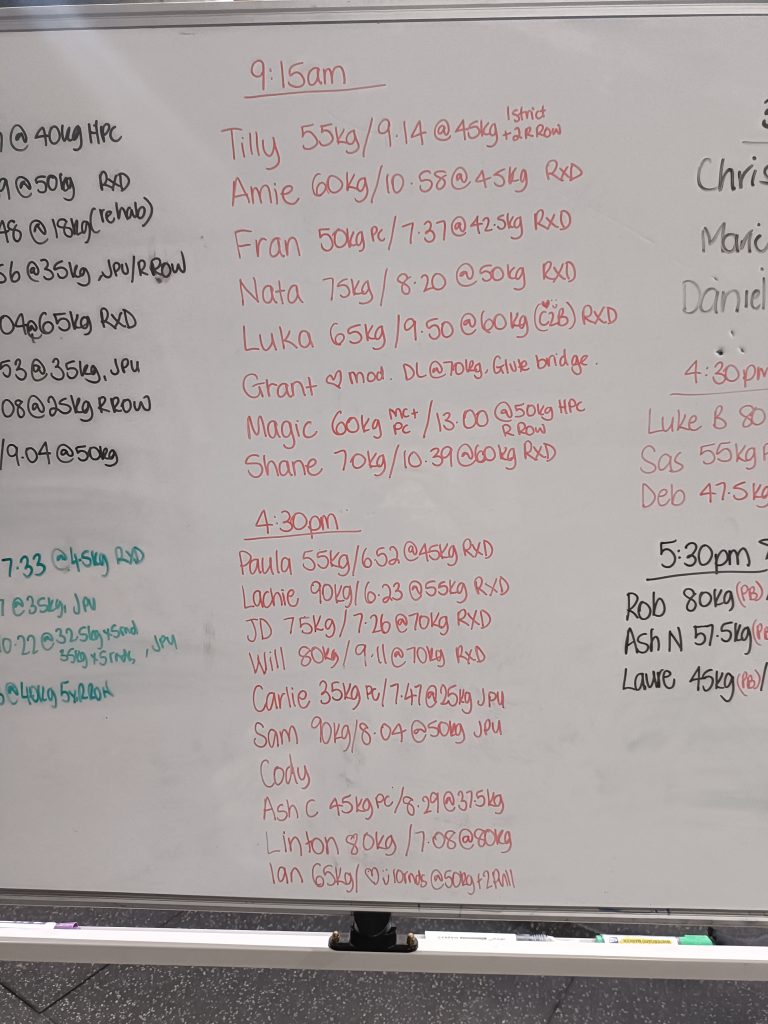 @ 40kg HPC
9 @ 50kg RXD
48 @ 18kg (rehab)
56 @ 35kg, JPU/R ROW
04@65kg RXD
53 @ 35kg, JPU
08@25kg R ROW
/9.04 @ 50kg
7.33 @ 45kg RXD
7 @ 35kg, JPU
0.22 @ 32.5kg x 5rnd
35kg x 5rnds, JPU
@ 40kg 5xRROW
9:15am
Tilly 55kg/9.14 @ 45kg 1strict +2R ROW
Amie 60kg/10.58 @ 45kg RXD
Fran 50kg PC/7.37@42.5kg RXD
Nata 75kg/8.20 @50kg RXD
Luka 65kg/9.50 @ 60kg (C2B) RXD
Grant ♡ mod. DL@70kg, Glute bridge.
Magic 60kg MC+ PC /13.00 @50kg HPC R ROW
Shane 70kg/10.39@60kg RXD
4:30pm
Paula 55kg/6.52 @45kg RXD
Lachie 90kg/6.23 @ 55kg RXD
JD 75kg/7.26 @ 70kg RXD
Will 80kg/9.11@70kg RXD
Carlie 35kg PC/7.47@25kg JPU
Sam 90kg/8.04 @50kg JPU
Cody
Ash C 45kg PC/8.29 @ 37.5kg
Linton 80kg /7.08@80kg
Ian 65kg/ ♡ü 10rnds @50kg+2R
3
Chris
Daniel
4:30pm
Luke B 80
Sas 55kg
Deb 47.5kg
5:30pm
Rob 80kg (PB)
Ash N 57.5kg (PB
Laure 45kg (PB)/